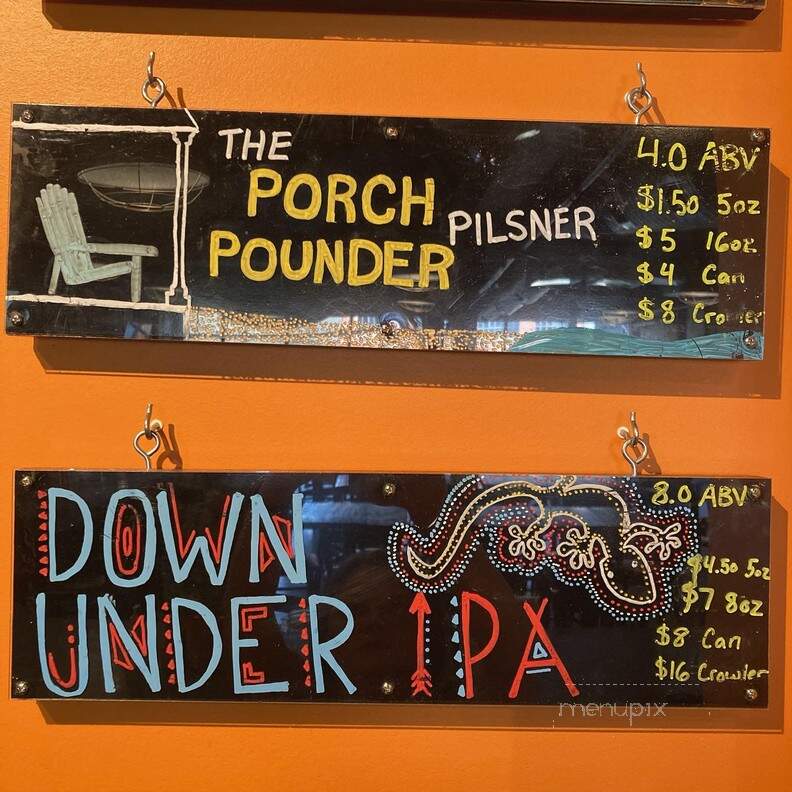 THE
PORCH
POUNDER
PILSNER
4.0 ABV
$1.50 5oz
$5 16oz
$4 Can
$8 Crowler
DOWN
UNDER IPA
8.0 ABV
$4.50 5oz
$7 8oz
$8 Can
$16 Crowler
menupix